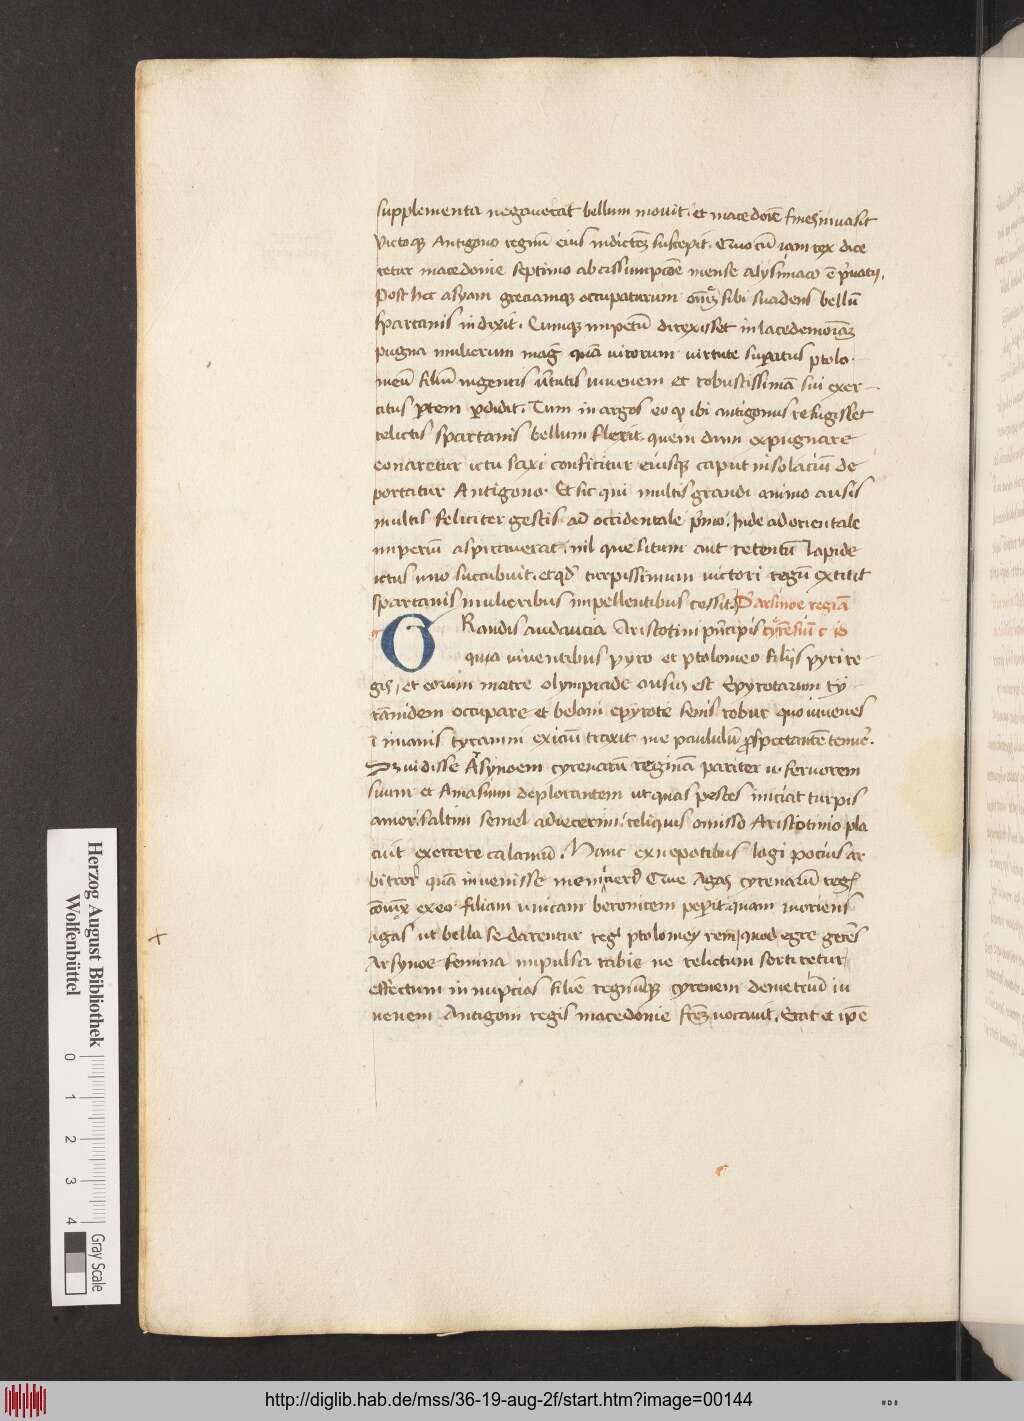 supplementa negaverat bellum movit. et macedoīe fines invasit
victoqꝫ Antigono regnū eius indictēꝫ suscepit. Quo cū iam rex dice
retur macedonie septimo abcissumpcōe mense alysimaco ē p̄vatꝫ.
Post hec asyam greciamqꝫ occupaturum sibi suadens bellū
spartanis indixit. Cumqꝫ impetū direxisset in lacedemoīaꝫ
pugna mulierum mag̃ quā virorum virtute suꝑatus ptolo
meū filiū ingentis v̄tutis iuvenem et robustissimā sui exer
citus ꝑtem ꝑdidit. Tum in argos eo ꝙ ibi antigonus refugisset
relictis spartanis bellum flexit. quem dum expugnare
conaretur ictu saxi conficitur eiusqꝫ caput in solaciū de
portatur Antigono. Et sic qui multis grandi animo ausis
multis feliciter gestis ad occidentale p̄mo. Inde ad orientale
imperiū aspiraverat. nil quesitum aut retentū lapide
ictus uno succubuit. et qd̄ turpissimum victori regū extitit
spartanis mulieribus impellentibus cessit. D' arsinoe regiā
GRandis audaucia Aristotini pn̄cipis cyrēsiū c io
quia viventibus pyro et ptolomeo filijs pyri re
gis, et eorum matre olympiade ausus est Epyrotarum ty
rānidem occupare et belani epyrote senis robur quo iuvenes
ī imanis tyranni exiciū traxit me paululū ꝓspectantē tenue᷒.
vidisse Arsynoem cyrenarū reginā pariter
suum et Amasium deplorantem ut quas pestes iniciat turpis
amor. saltim semel advecerim. reliquis omisso Aristotinio pla
cuit exercere calamū. Hanc ex nepotibus lagi pocius ar
bitror quā invenisse Que Agas cyrenarū reg̃
ex eo filiam unicam beronicem peꝑit. quam moriens
agas ut bella sedarentur regi ptolomey quod egre gerēs
Arsynoe femina impulsa rabie ne relictum sortiretur
effectum in nupcias filie regnūqꝫ cyrenem demetriū iu
venem Antigoni regis macedonie frēꝫ vocavit. Erat et ipē
Herzog August Bibliothek
Wolfenbüttel
0 1 2 3 4
Gray Scale
http://diglib.hab.de/mss/36-19-aug-2f/start.htm?image=00144